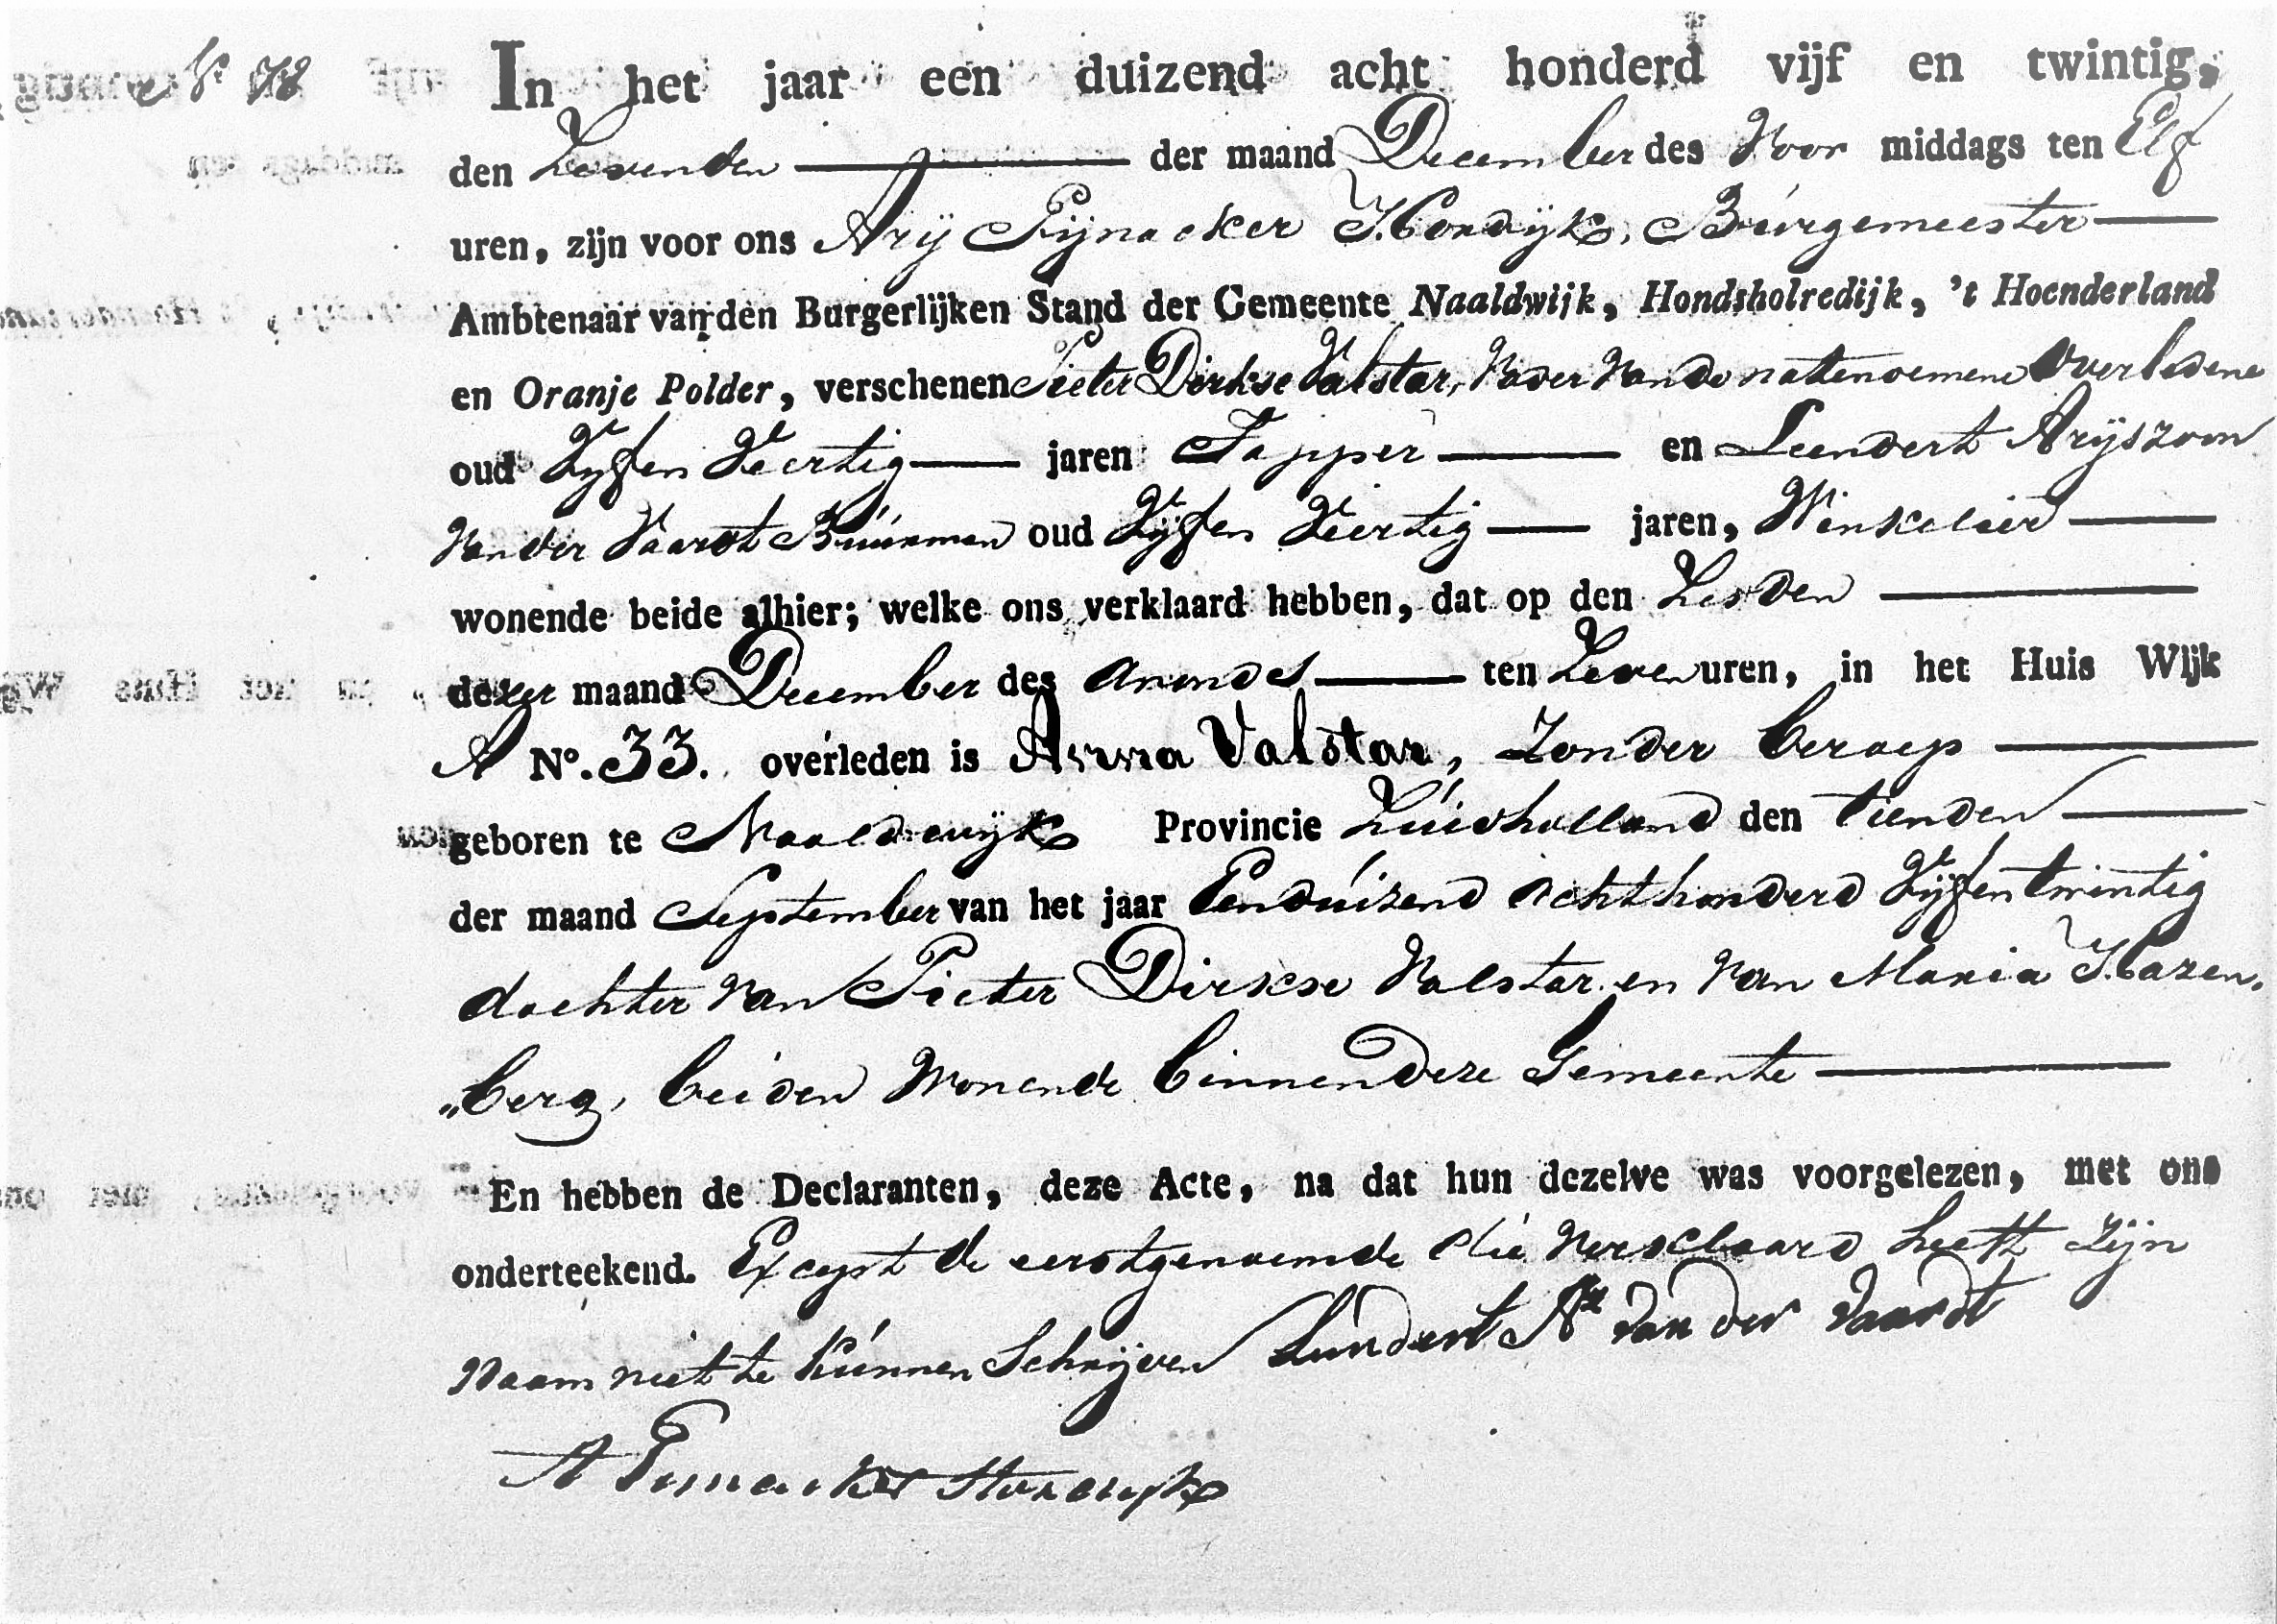 N° 78
In het jaar een duizend acht honderd vijf en twintig,
den Zevenden der maand December des Voor middags ten Elf
uren, zijn voor ons Arij Pijnacker Hondijk, Burgemeester
Ambtenaar van den Burgerlijken Stand der Gemeente Naaldwijk, Hondsholredijk, 't Hoenderland
en Oranje Polder, verschenen Pieter Dirkse Valstar, Vader van de natenoemene Overledene
oud Vyfen Veertig jaren Tapper en Leendert Arijszoon
van der Vaardt Buurman oud Vijfen Veertig jaren, Winkelier
wonende beide alhier; welke ons verklaard hebben, dat op den Zesden
dezer maand December des avonds ten Zeven uren, in het Huis Wijk
A N°. 33. overleden is Anna Valstar, Zonder beroep
geboren te Naaldwijk Provincie Zuidholland den tienden
der maand September van het jaar Eenduizend achthonderd Vijfentwintig
dochter van Pieter Dirkse Valstar en van Maria Hazen„
„berg, beiden Wonende binnen deze Gemeente
En hebben de Declaranten, deze Acte, na dat hun dezelve was voorgelezen, met ons
onderteekend. Except de eerstgenoemde die verklaard heeft zijn
Naam niet te kunnen Schrijven Leendert Az van der Vaardt
A Pijnacker Hondijk